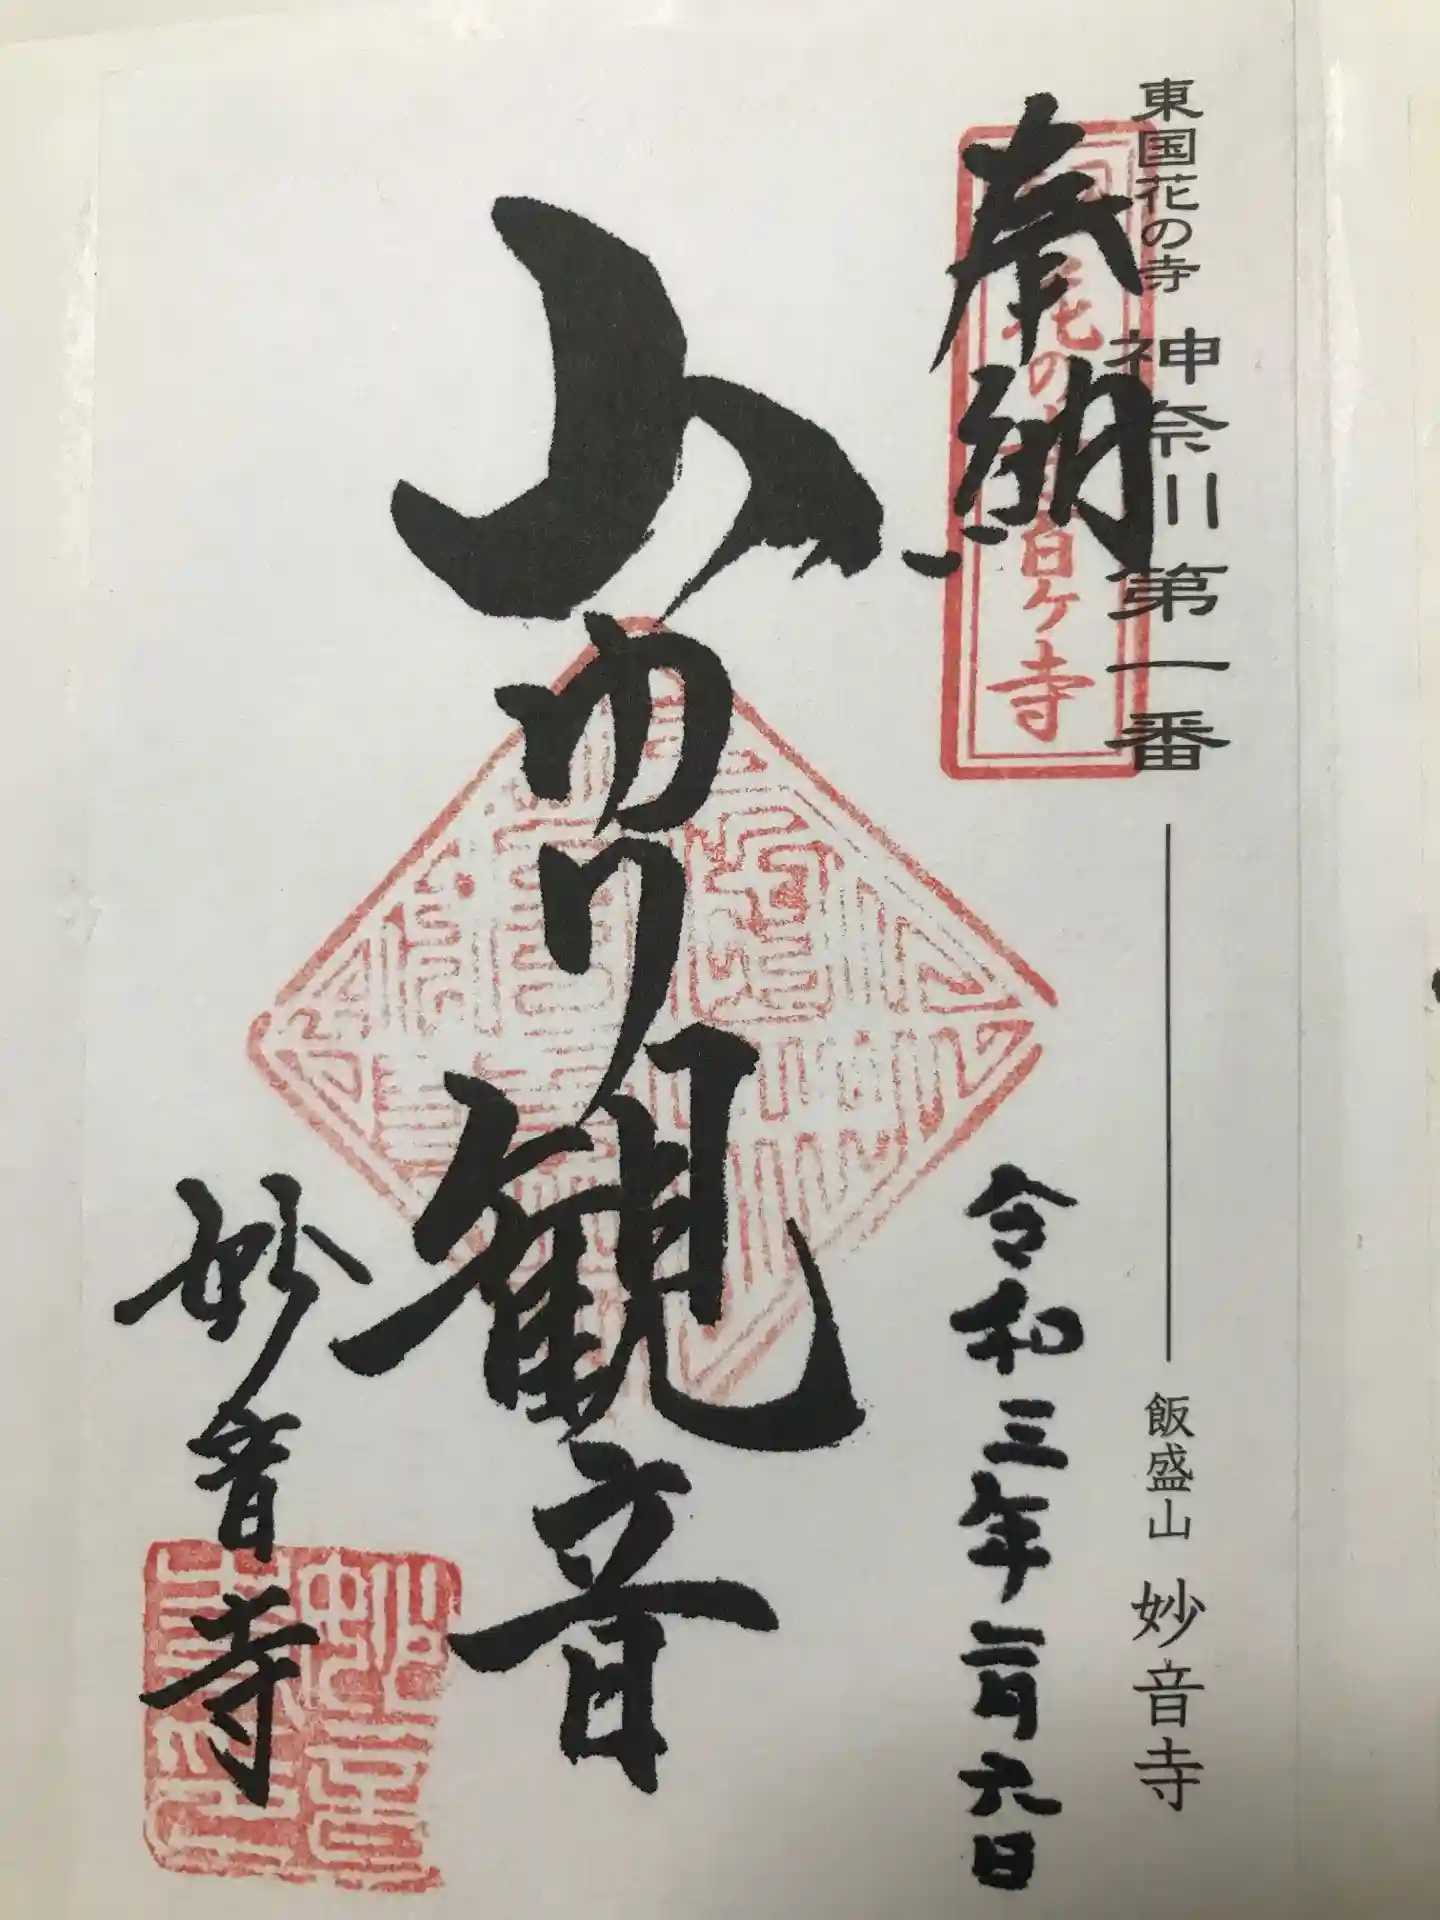 東国花の寺 神奈川第一番 ── 飯盛山 妙音寺
奉納
花の寺百ケ寺
令和三年二月六日
山ゆり観音
妙音寺